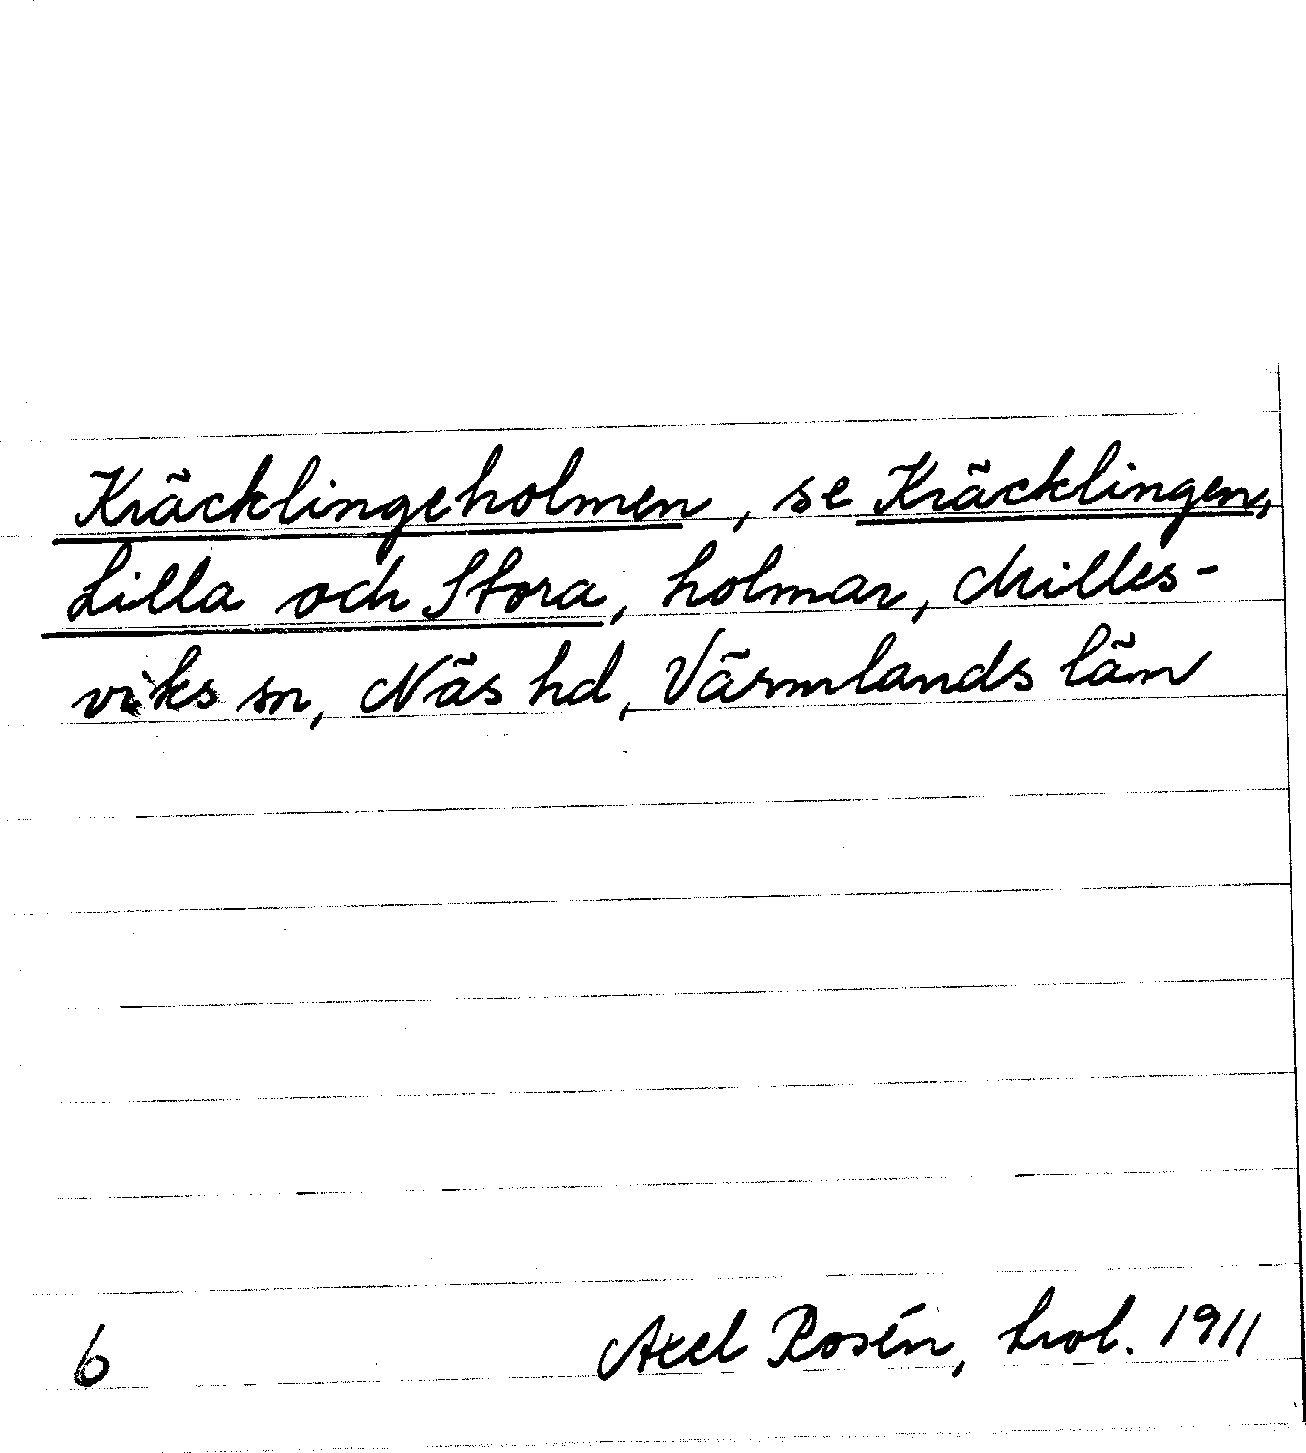 Kräcklingeholmen, se Kräcklingen,
Lilla och Stora, holmar, Milles-
viks sn, Näs hd, Värmlands län
6 Axel Rosén, trol. 1911